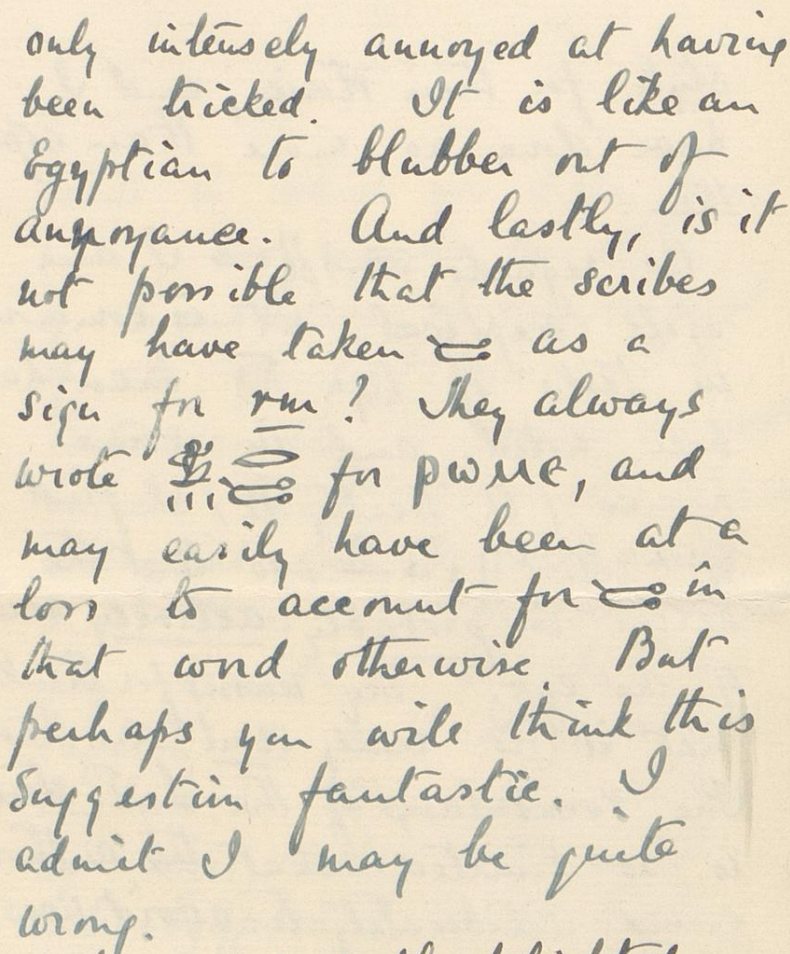 only intensely annoyed at having
been tricked. It is like an
Egyptian to blubber out of
annoyance. And lastly, is it
not possible that the scribes
may have taken as a
sign for rm? They always
wrote for ⲣⲱⲙⲉ, and
may easily have been at a
loss to account for in
that word otherwise. But
perhaps you will think this
suggestion fantastic. I
admit I may be quite
wrong.